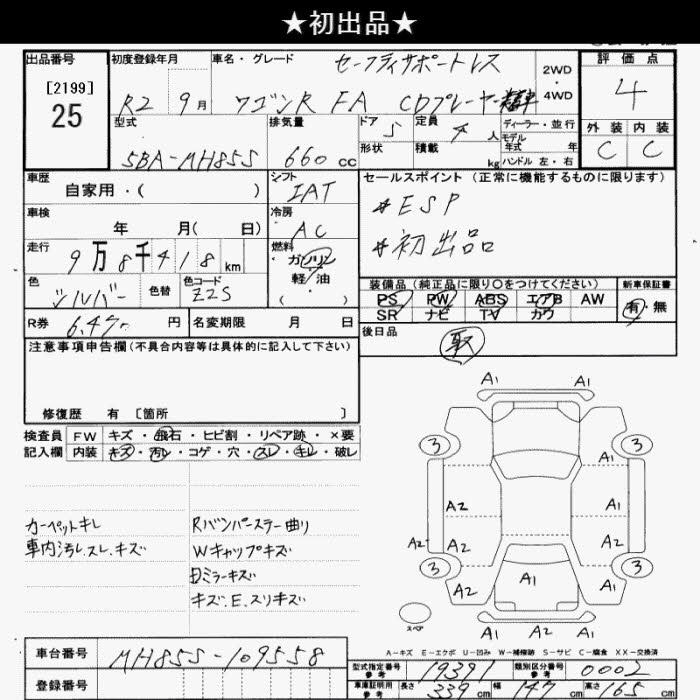 ★初出品★
出品番号
[2199]
25
初度登録年月
R2 9月
車名・グレード
セーフティサポートレス
ワゴンR FA CDプレーヤー
2WD
・
4WD
評価点
4
外装 内装
C C
型式
5BA-MH85S
排気量
660 cc
ドア
5
定員
4 人
ディーラー・並行
モデル
年式 年
形状
積載 kg
ハンドル 左・右
車歴
自家用・( )
シフト
IAT
セールスポイント (正常に機能するものに限ります)
#ESP
#初出品
車検
年 月( 日)
冷房
AC
走行
9万8千418km
燃料
ガソリン
軽・油
( ・ )
色
シルバー
色替
色コード
Z2S
装備品 (純正品に限り○をつけてください)
PS PW ABS エアB AW
SR ナビ TV カワ
新車保証書
有・無
R券 6,470円
名変期限 月 日
後日品
取
注意事項申告欄(不具合内容等は具体的に記入して下さい)
修復歴 有 〔箇所 〕
検査員
記入欄
FW キズ・飛石・ヒビ割・リペア跡・×要
内装 キズ・汚レ・コゲ・穴・スレ・キレ・破レ
カーペットキレ
車内汚レ.スレ.キズ
Rバンパーステー曲り
Wキャップキズ
日ミラーキズ
キズ.E.スリキズ
A1 A1
3 3
A1
A2
A1
A2 A2 A2
3 3
A2 A1 A1
A1 A2 A1
スペア
A-キズ E-エクボ U-凹み W-補修跡 S-サビ C-腐食 XX-交換済
車台番号
MH85S-109558
登録番号
型式指定番号
参考
19391
類別区分番号
参考
0002
車庫証明用
参考
長さ 339 cm 幅 147 cm 高さ 165 cm